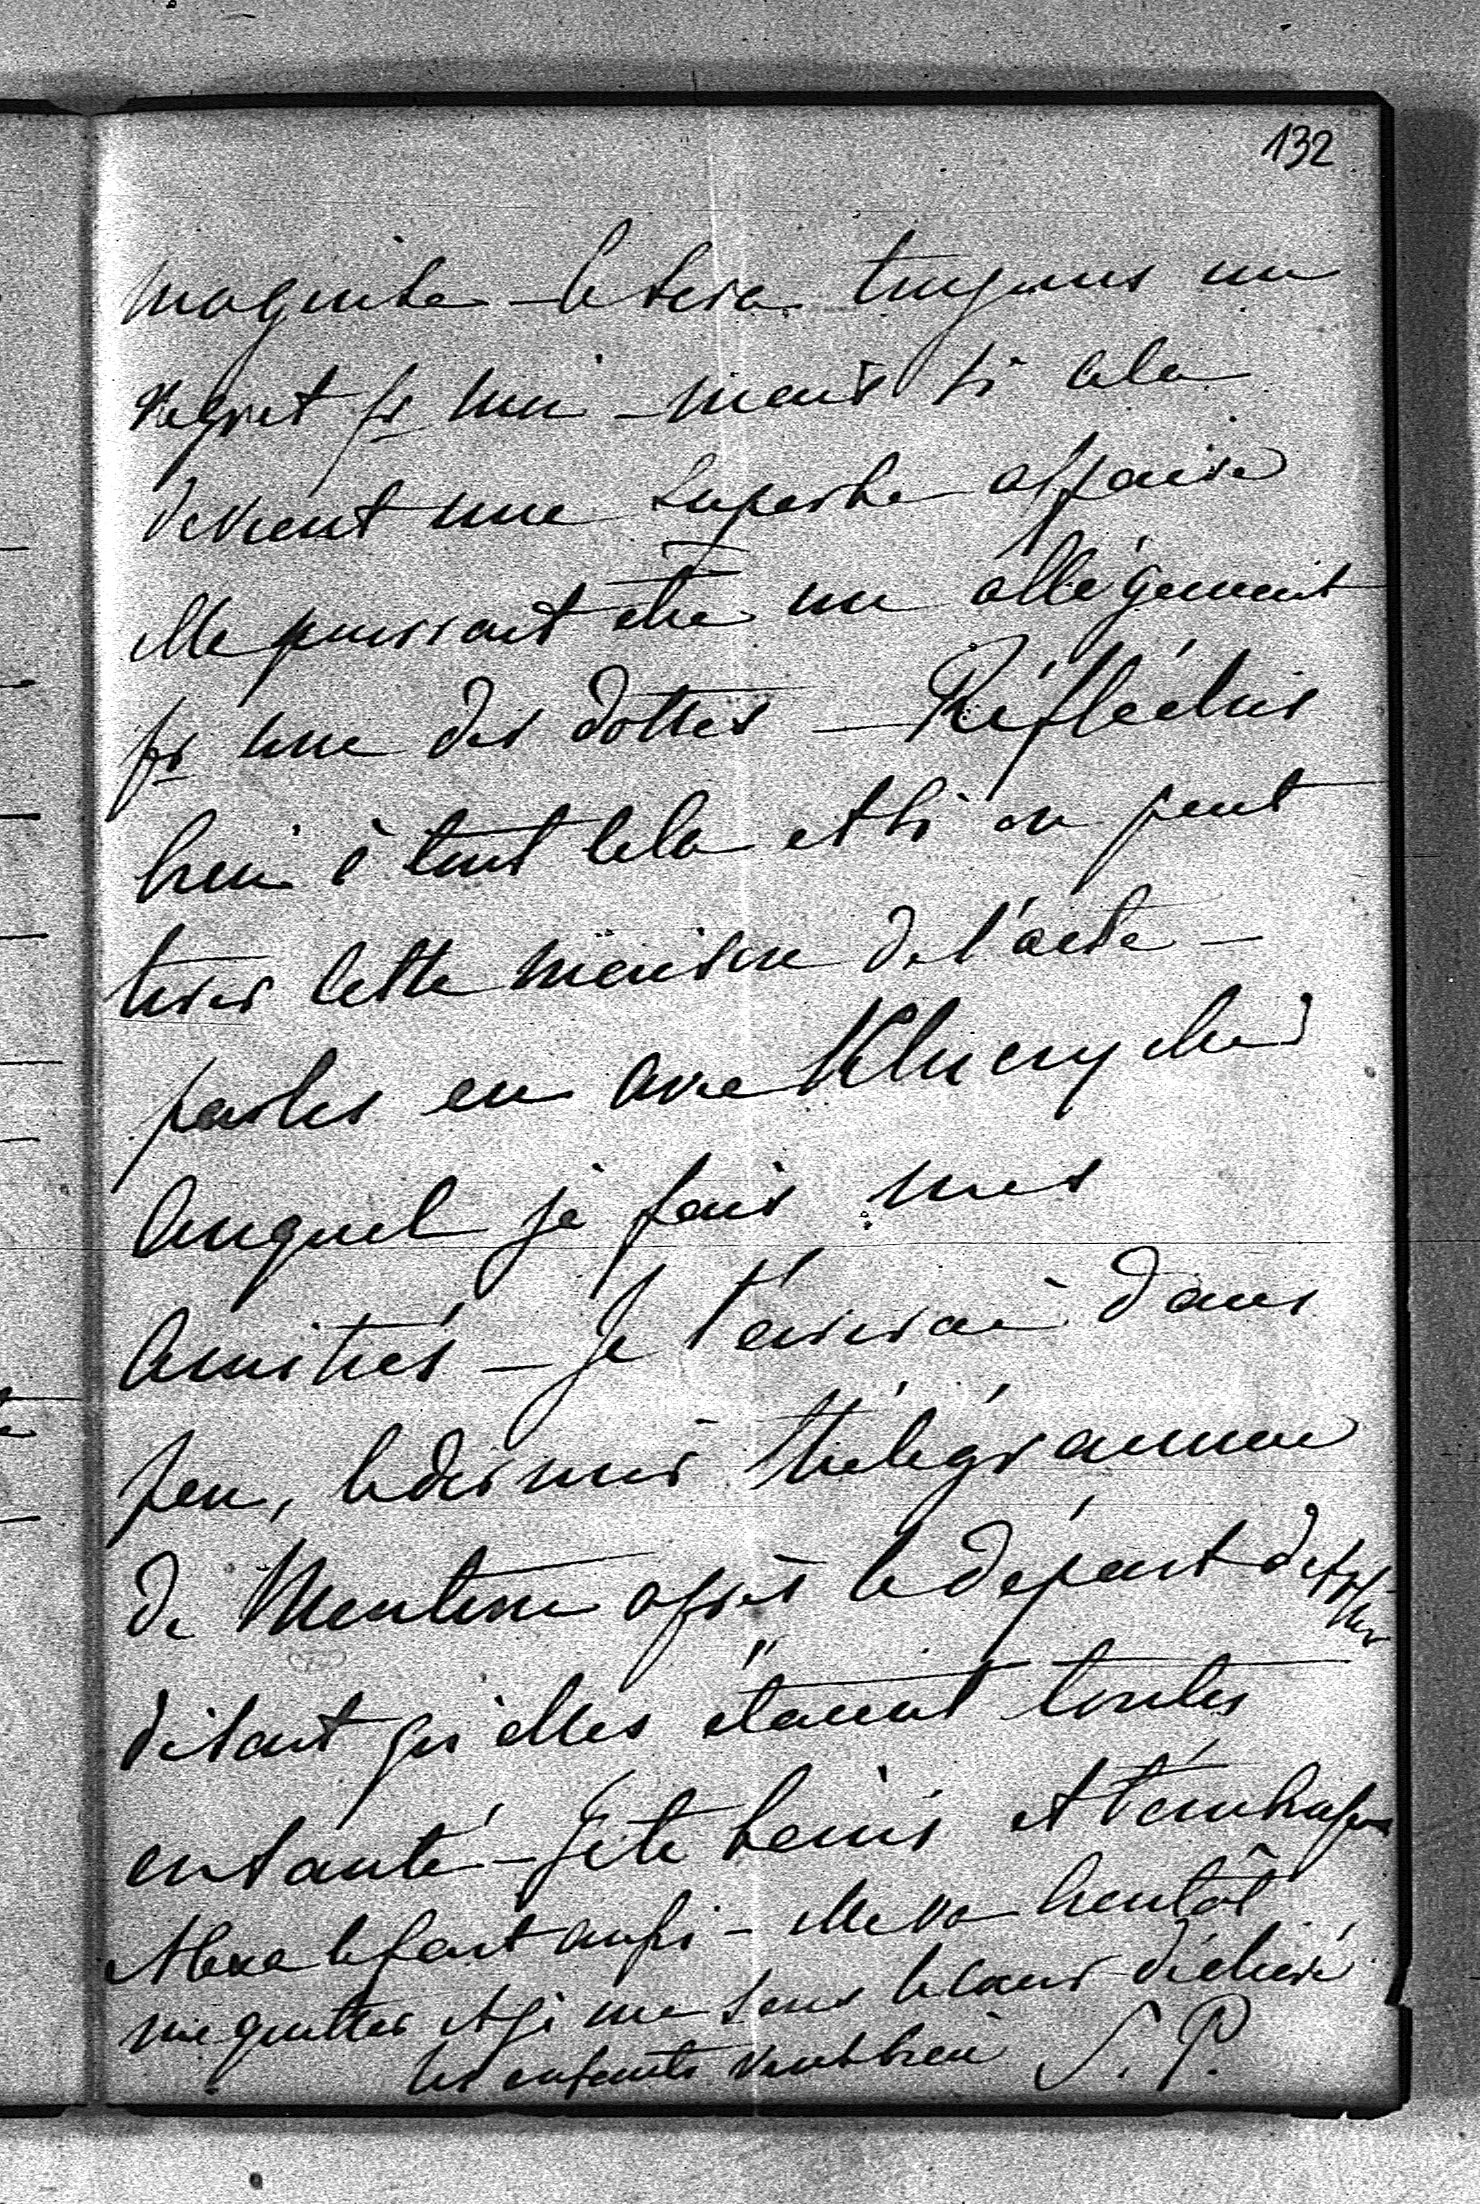 132
maquite – ce sera toujours un
regret pr moi – mais si cela
devient une superbe affaire
elle pourrait être un allégement
pr une des dottes – Réfléchis
bien à tout cela et si on peut
tirer cette maison de l'acte –
parles en avec
auquel je fais mes
amitiés – Je t'écrirai dans
peu, le dernier thélégramme
de Mentone après le départ de
disant qu'elles étaient toutes
en santé – Je te benis et t'embrasse
Alexa le fait aussi – elle va bientôt
me quitter et je me sens le cœur déchiré
les enfants vont bien S. P.